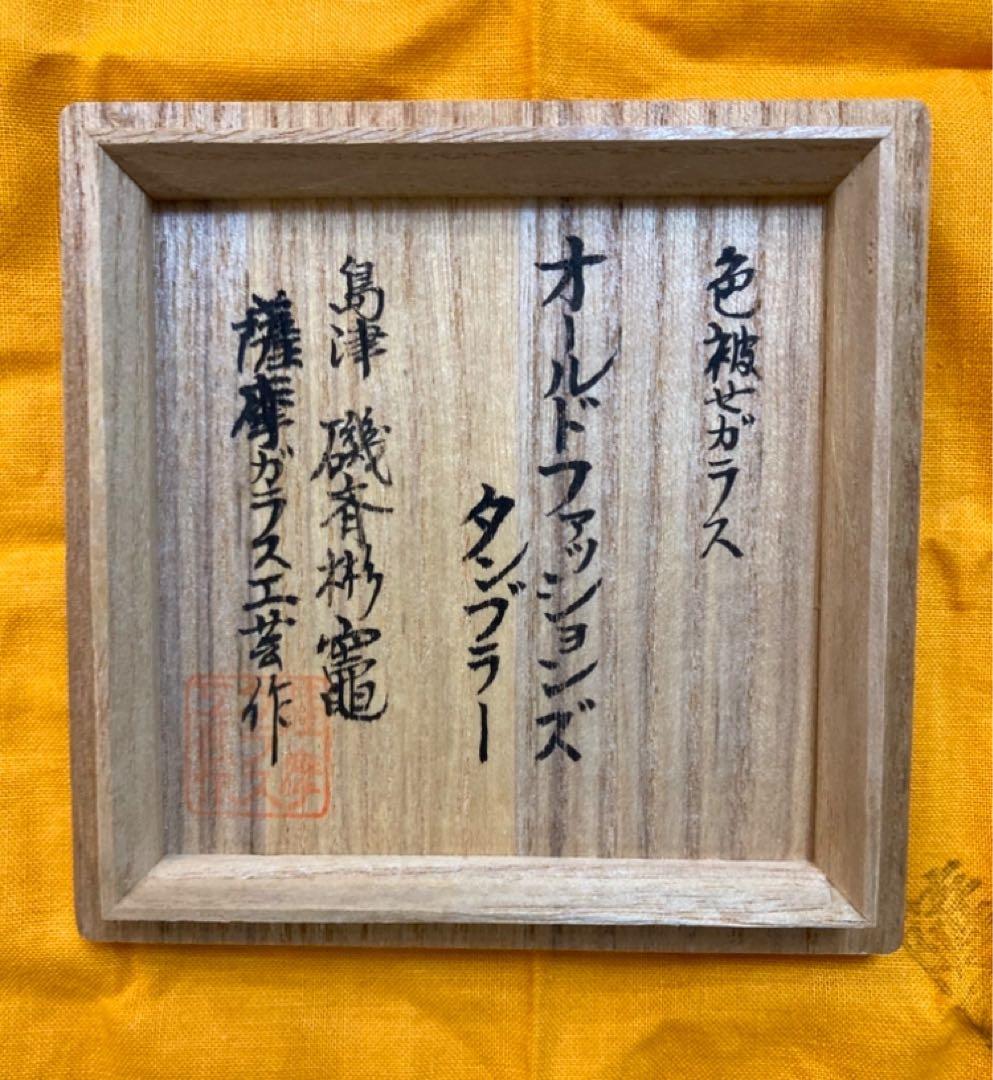 色被せガラス
オールドファッションズ
タンブラー
島津 磯斉彬竈
薩摩ガラス工芸作